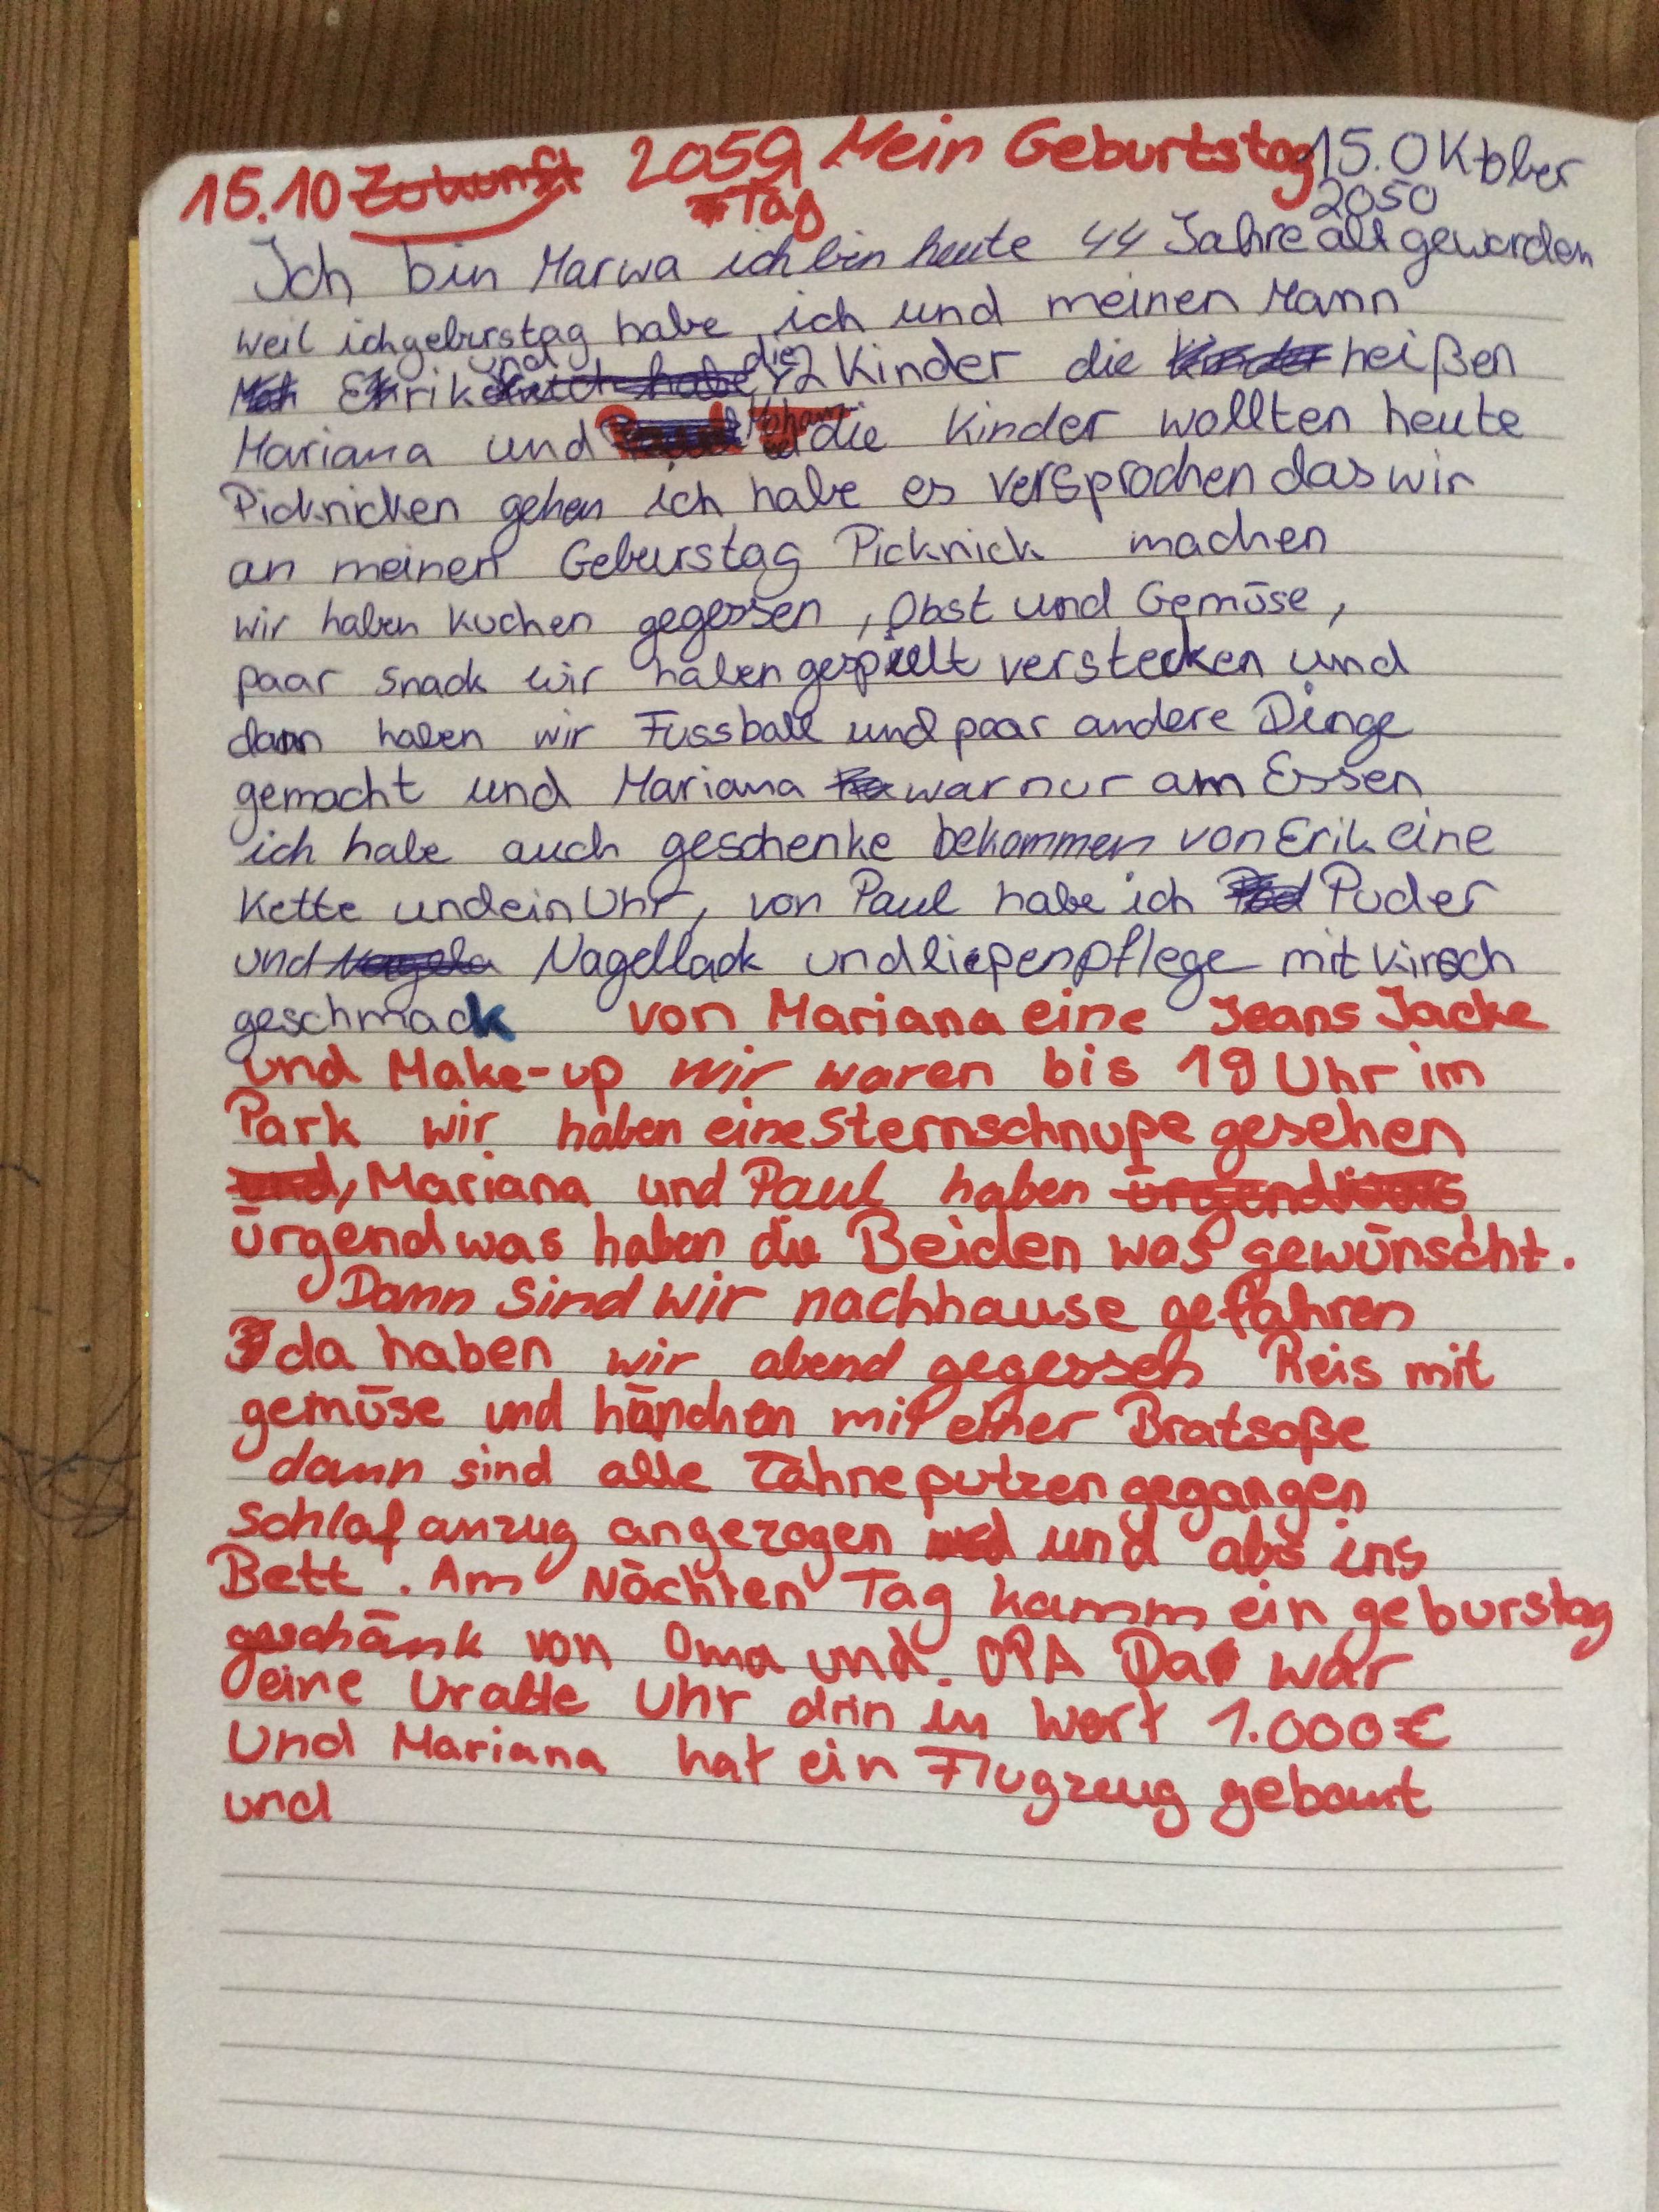 15.10 Zukunft 2059 Mein Geburtstag 15. Oktober
Tag 2050
Ich bin Marwa ich bin heute 44 Jahre alt geworden
weil ich geburstag habe ich und meinen Mann
Erik und die 2 Kinder die heißen
Mariana und die Kinder wollten heute
Picknicken gehen ich habe es versprochen das wir
an meinen Geburstag Picknick machen
wir haben kuchen gegessen, Obst und Gemüse,
paar snack wir haben gespielt verstecken und
dann haben wir Fussball und paar andere Dinge
gemacht und Mariana war nur am Essen
ich habe auch geschenke bekommen von Erik eine
Kette und ein Uhr, von Paul habe ich Puder
und Nagellack und liepenpflege mit Kirsch
geschmack von Mariana eine Jeans Jacke
und Make-up wir waren bis 19 Uhr im
Park wir haben eine Sternschnupe gesehen
und, Mariana und Paul haben
ürgendwas haben die Beiden was gewünscht.
Dann Sind wir nachhause gefahren
da haben wir abend gegessen Reis mit
gemüse und hänchen mit einer Bratsoße
dann sind alle Zähneputzen gegangen
Schlafanzug angezogen und abs ins
Bett. Am Nächten Tag kamm ein geburstag
geschänk von Oma und. OPA Da war
eine Uralte Uhr drin in Wert 1.000€
Und Mariana hat ein Flugzeug gebaut
und